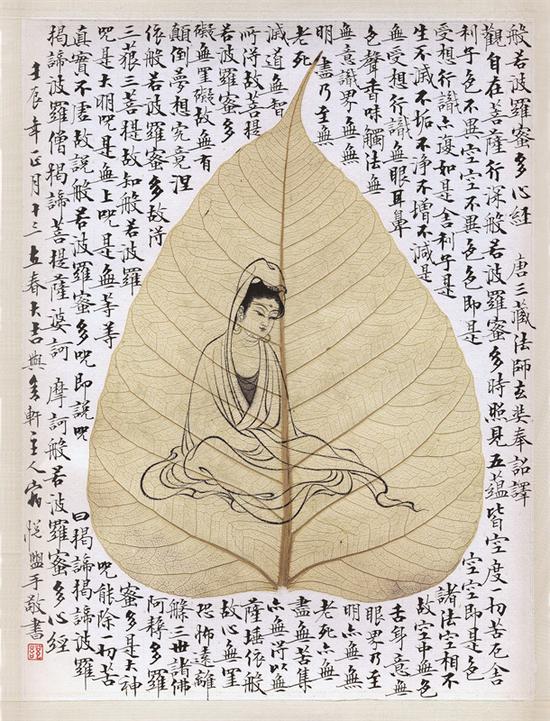 般若波羅蜜多心經 唐三藏法師玄奘奉詔譯
觀自在菩薩行深般若波羅蜜多時照見五蘊皆空度一切苦厄舍
利子色不異空空不異色色即是 空空即是色
受想行識亦復如是舍利子是 諸法空相不
生不滅不垢不淨不增不減是 故空中無色
無受想行識無眼耳鼻 舌身意無
色聲香味觸法無 眼界乃至
無意識界無無 明亦無無
明盡乃至無 老死亦無
老死 盡無苦集
滅道無智 亦無得以無
所得故菩提 薩埵依般
若波羅蜜多 故心無罣
礙無罣礙故無有 恐怖遠離
顛倒夢想究竟涅 槃三世諸佛
依般若波羅蜜多故得 阿耨多羅
三藐三菩提故知般若波羅 蜜多是大神
呪是大明呪是無上呪是無等等 呪能除一切苦
真實不虛故說般若波羅蜜多呪即說呪 曰揭諦揭諦波羅
揭諦波羅僧揭諦菩提薩婆訶 摩訶般若波羅蜜多心經
壬辰年正月十三立春大吉與軒主人悅盥手敬書